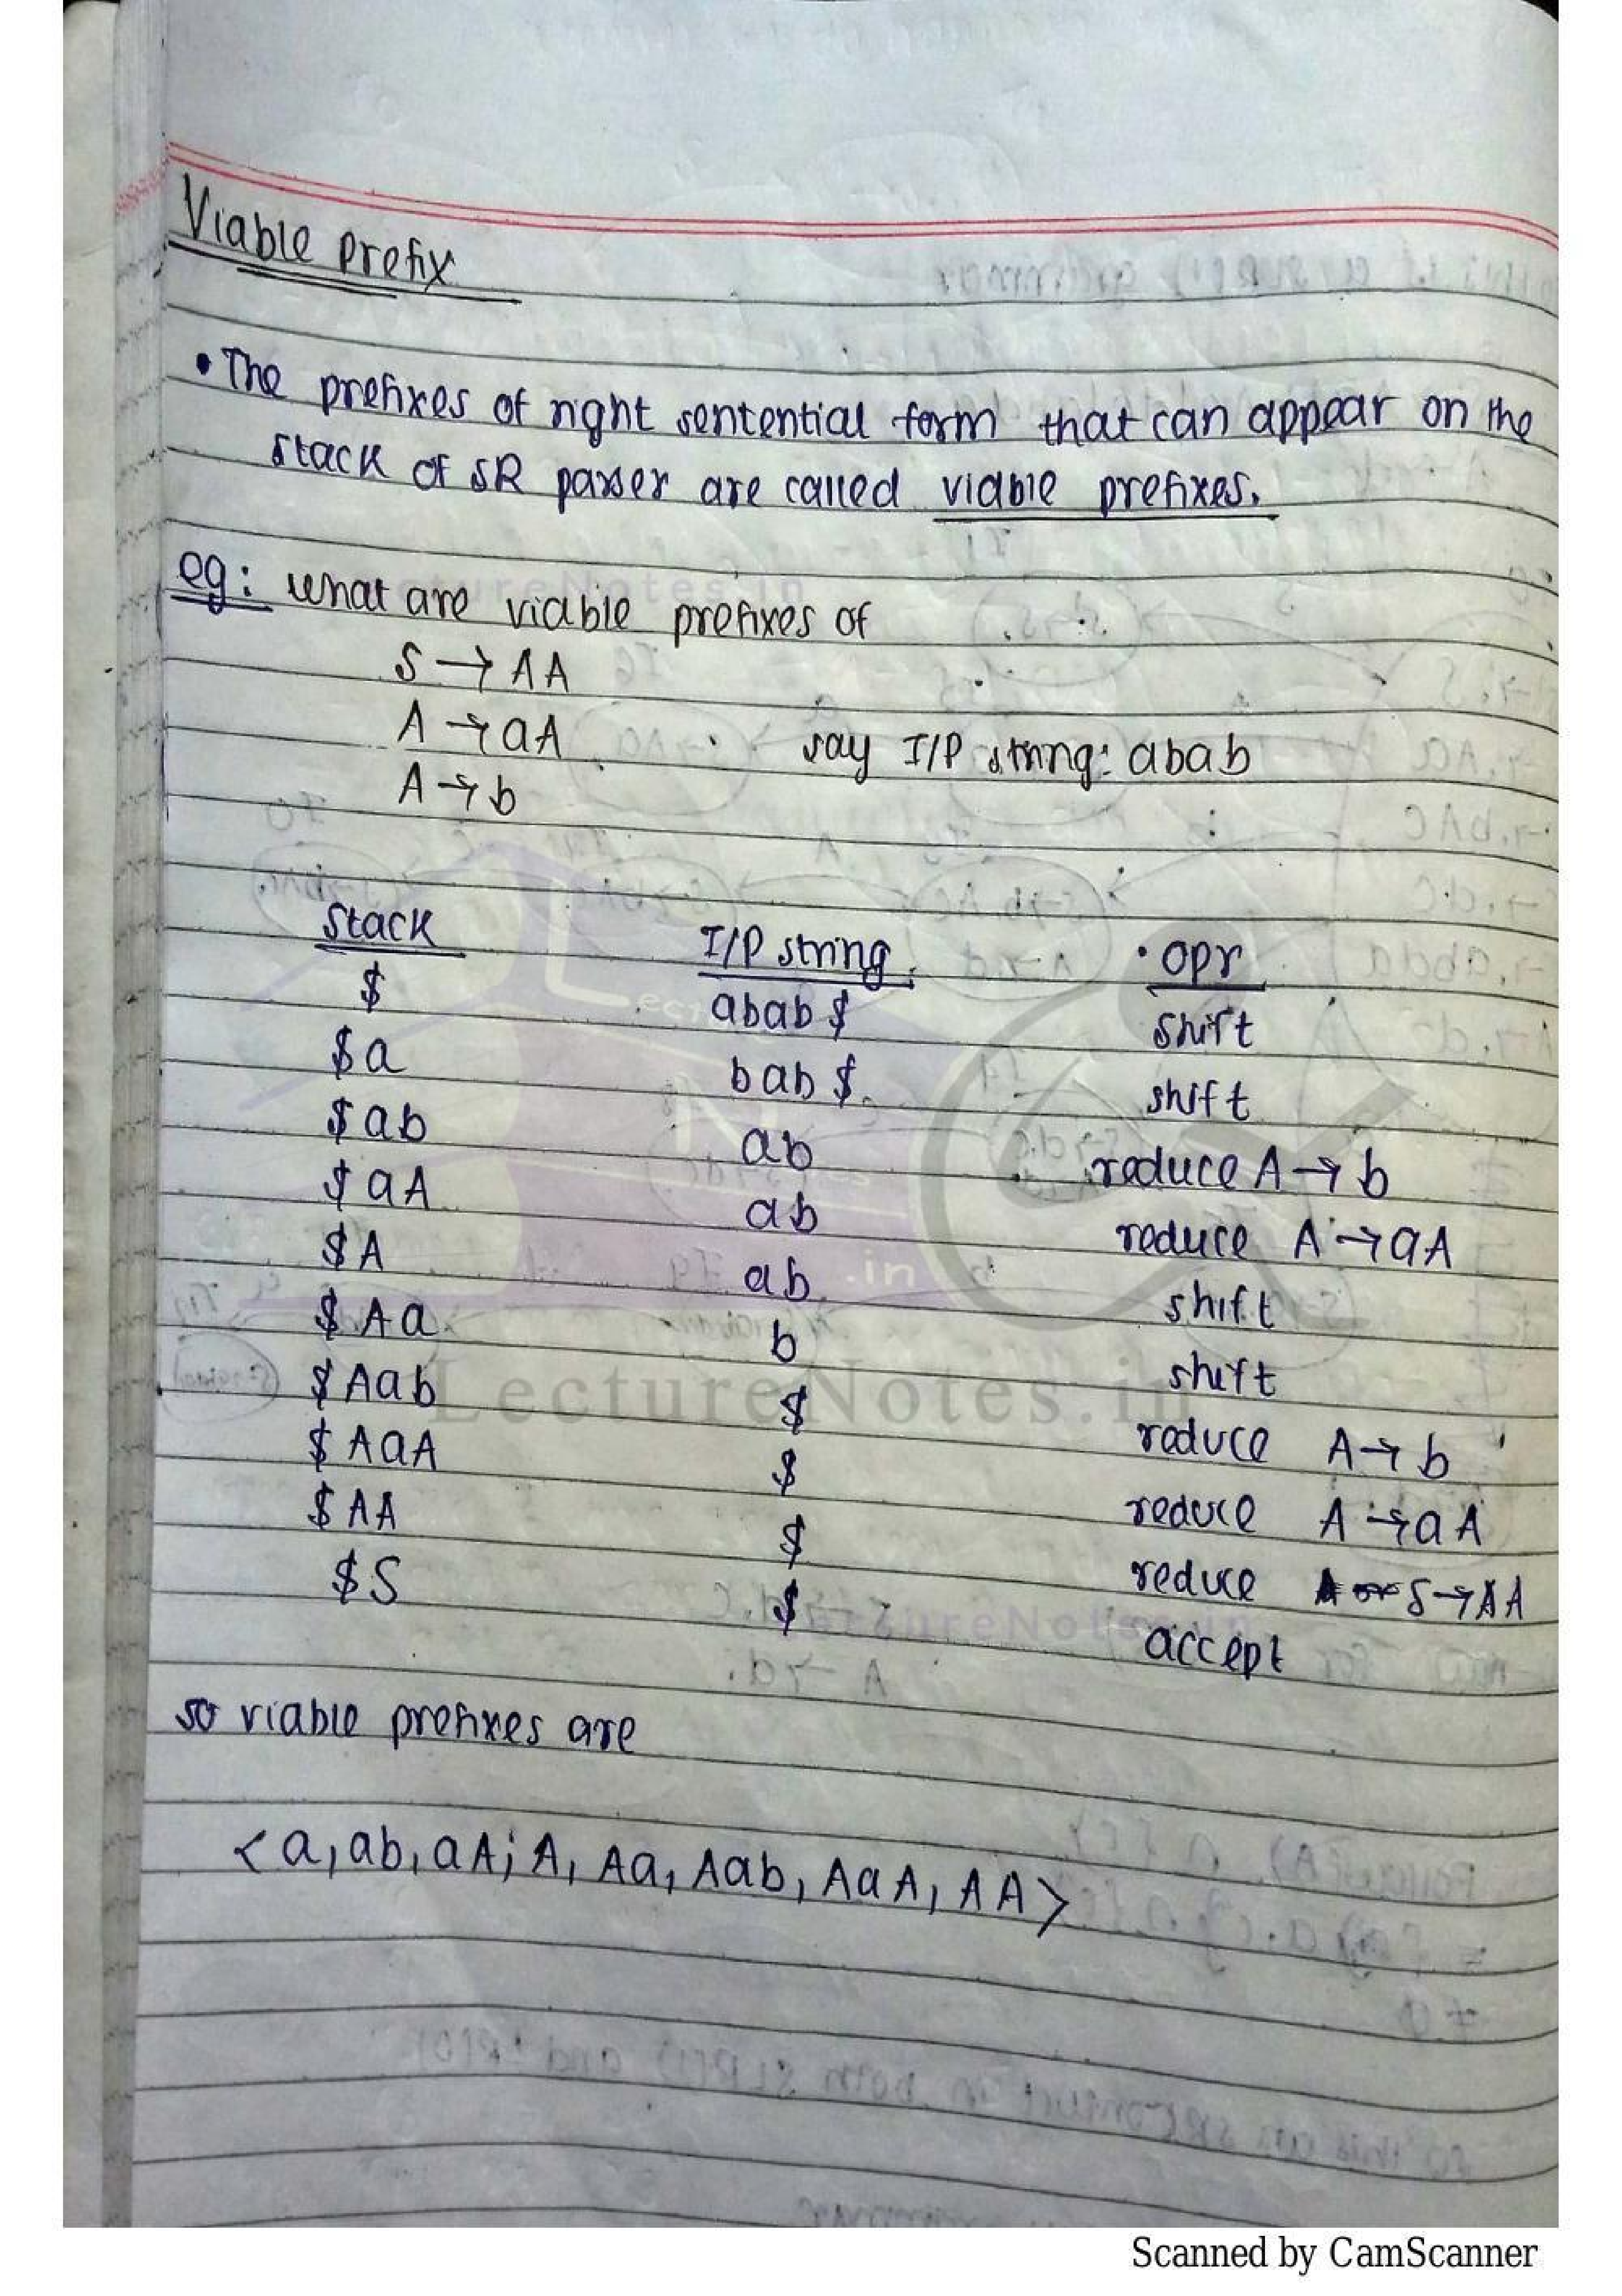 Viable prefix
• The prefixes of right sentential form that can appear on the
stack of SR parser are called viable prefixes.
eg: what are viable prefixes of
S → AA
A → aA say I/P string: abab
A → b
Stack I/P string opr
$ abab $ shift
$ a bab $ shift
$ ab ab reduce A → b
$ aA ab reduce A → aA
$ A ab shift
$ Aa b shift
$ Aab $ reduce A → b
$ AaA $ reduce A → aA
$ AA $ reduce S → AA
$ S $ accept
so viable prefixes are
< a, ab, aA, A, Aa, Aab, AaA, AA >
LectureNotes.in
Scanned by CamScanner